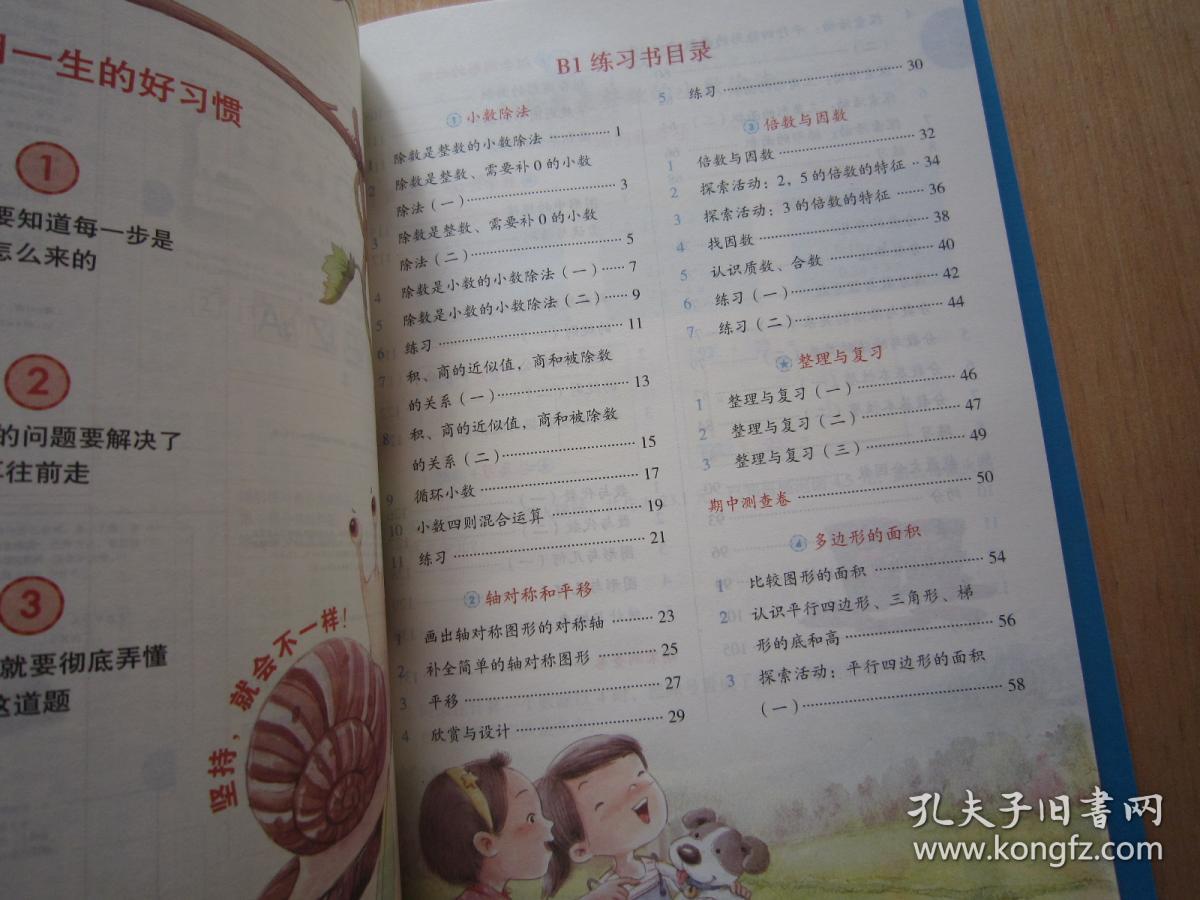 一生的好习惯
1
要知道每一步是
怎么来的
2
的问题要解决了
往前走
3
就要彻底弄懂
这道题
坚持，就会不一样！
B1 练习书目录
① 小数除法
1 除数是整数的小数除法 …… 1
2 除数是整数、需要补0的小数
除法（一）…… 3
3 除数是整数、需要补0的小数
除法（二）…… 5
4 除数是小数的小数除法（一）…… 7
5 除数是小数的小数除法（二）…… 9
6 练习 …… 11
7 积、商的近似值，商和被除数
的关系（一）…… 13
8 积、商的近似值，商和被除数
的关系（二）…… 15
9 循环小数 …… 17
10 小数四则混合运算 …… 19
11 练习 …… 21
② 轴对称和平移
1 画出轴对称图形的对称轴 …… 23
2 补全简单的轴对称图形 …… 25
3 平移 …… 27
4 欣赏与设计 …… 29
5 练习 …… 30
③ 倍数与因数
1 倍数与因数 …… 32
2 探索活动：2，5的倍数的特征 …… 34
3 探索活动：3的倍数的特征 …… 36
4 找因数 …… 38
5 认识质数、合数 …… 40
6 练习（一）…… 42
7 练习（二）…… 44
★ 整理与复习
1 整理与复习（一）…… 46
2 整理与复习（二）…… 47
3 整理与复习（三）…… 49
期中测查卷 …… 50
④ 多边形的面积
1 比较图形的面积 …… 54
2 认识平行四边形、三角形、梯
形的底和高 …… 56
3 探索活动：平行四边形的面积
（一）…… 58
孔夫子旧書网
www.kongfz.com